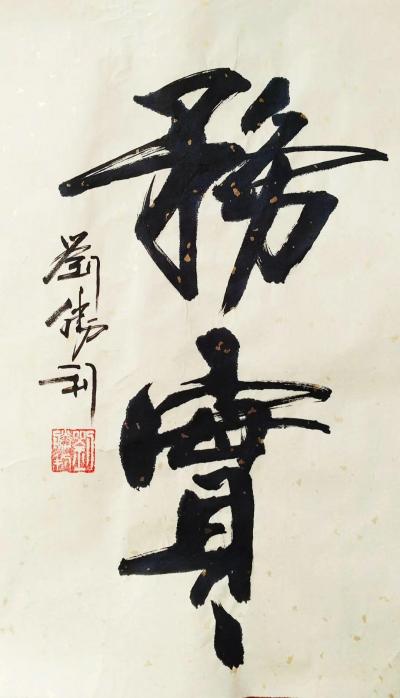 務實
劉勝利